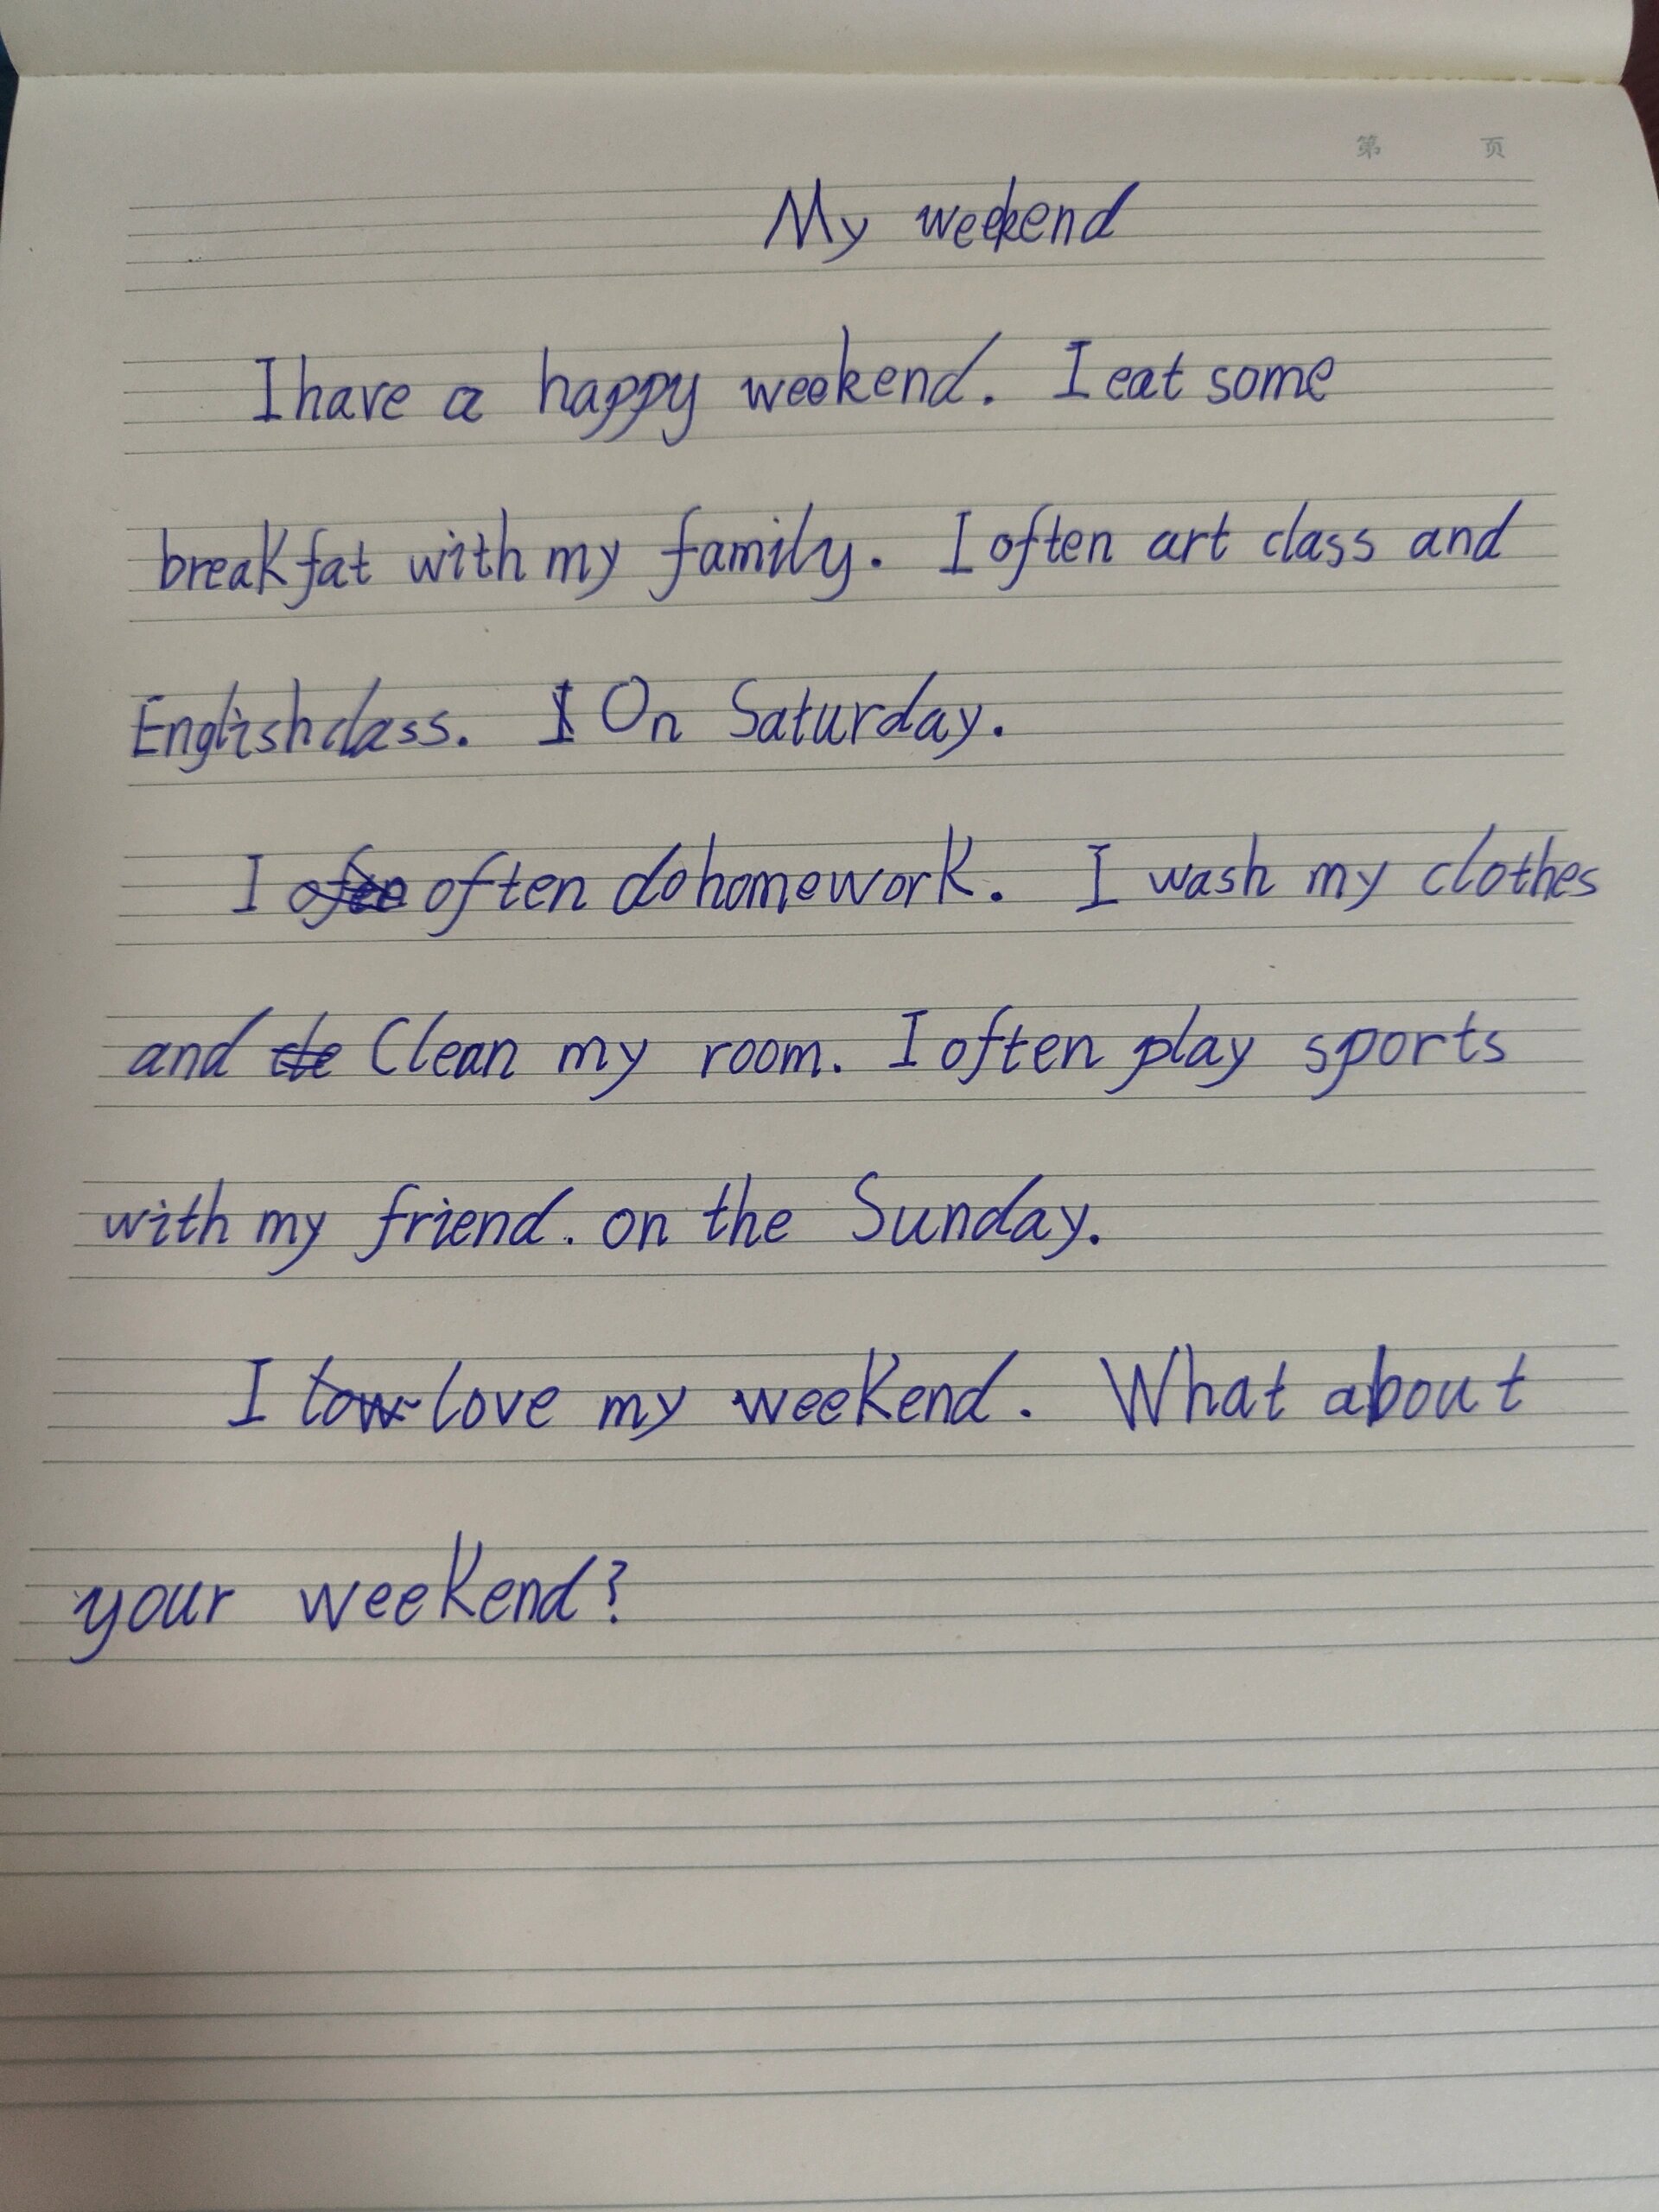 第 页
My weekend
I have a happy weekend. I eat some
breakfat with my family. I often art class and
English class. I On Saturday.
I ofen often do homework. I wash my clothes
and cle Clean my room. I often play sports
with my friend. on the Sunday.
I low love my weekend. What about
your weekend?